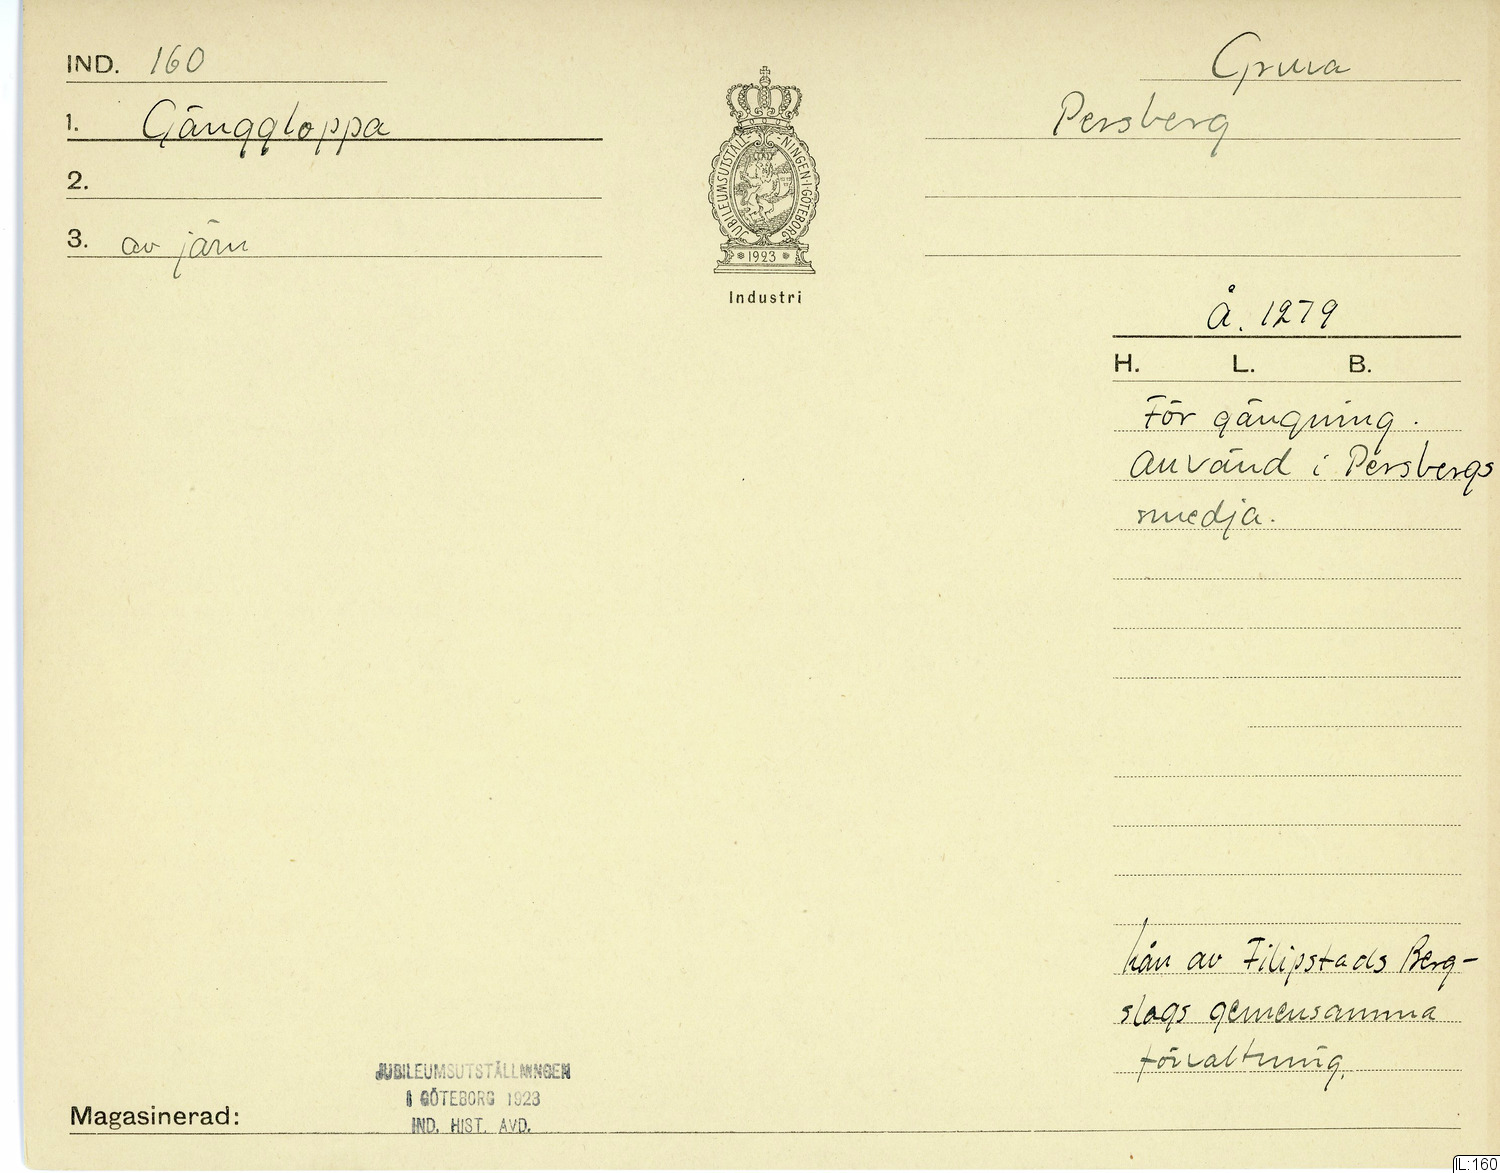 IND. 160
Gruva
1. Gängkloppa
Persberg
2.
3. av järn
JUBILEUMSUTSTÄLL-NINGEN·I·GÖTEBORG
1923
Industri
Å. 1279
H. L. B.
För gängning.
Använd i Persbergs
smedja.
Lån av Filipstads Berg-
slags gemensamma
förvaltning.
JUBILEUMSUTSTÄLLNINGEN
I GÖTEBORG 1923
IND. HIST. AVD.
Magasinerad:
IL:160